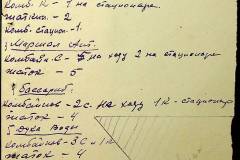 Комб. К - 1 на стационаре
жатки. - 2
Комб. стацион. - 1.
Маршал Ант.
Комбайн С - 5 на ходу 2 на стационаре
жаток - 5
Бассариб.
Комбайнов - 2 с. На ходу 1 К - стационар
жаток - 4
5 Дужа Воды
Комбайнов - 3 С и 1 К
жаток - 4